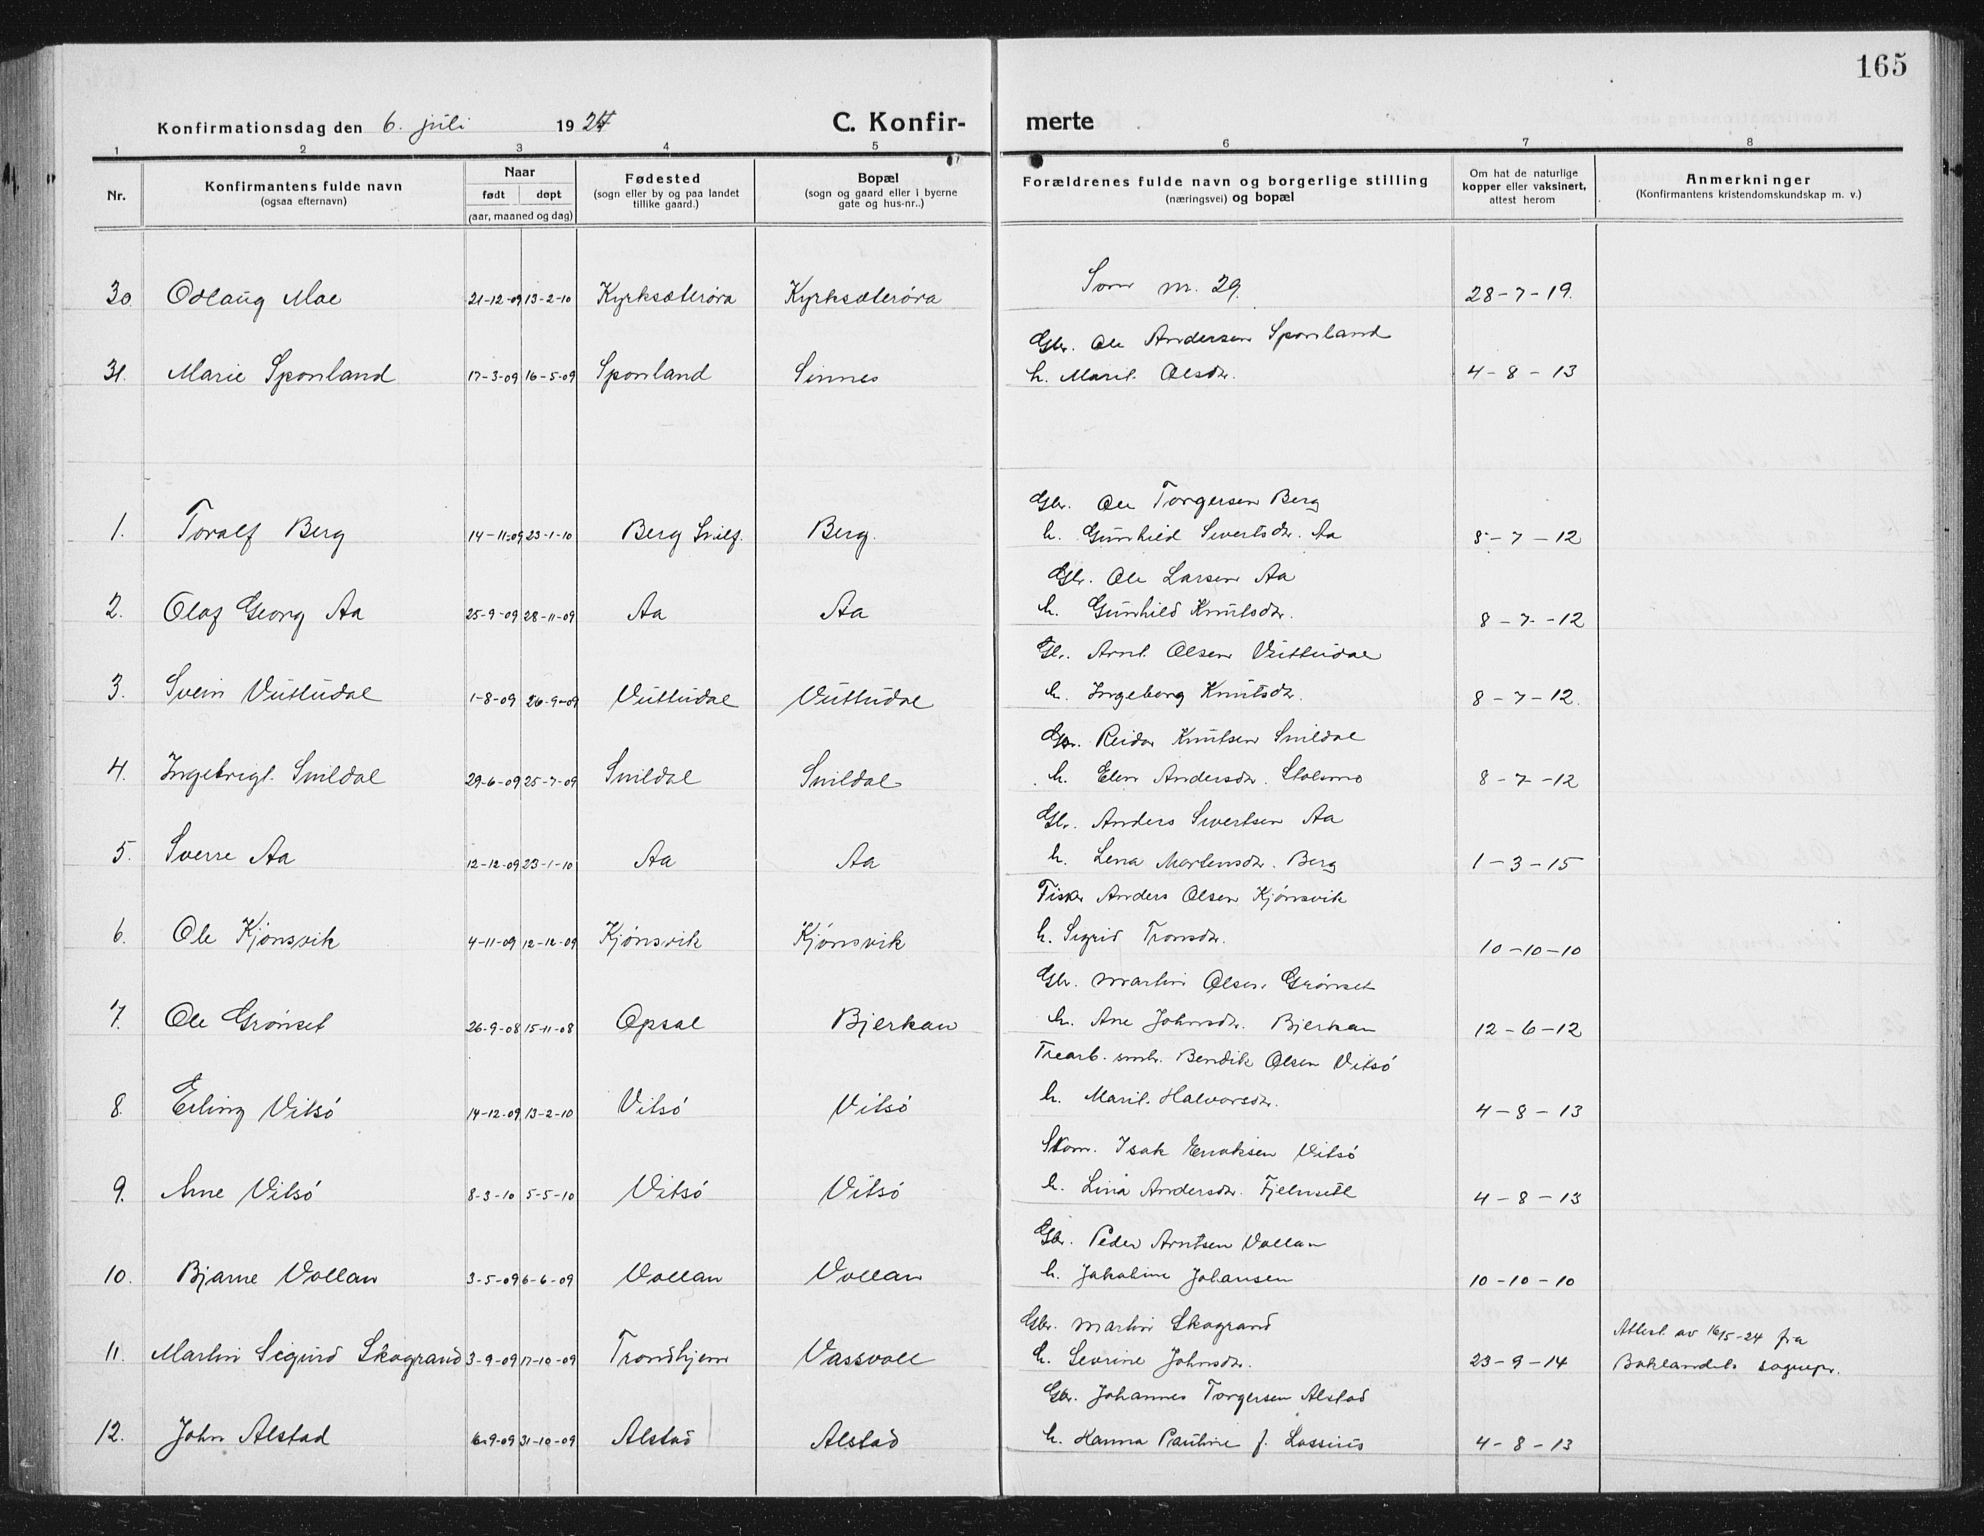 165
Konfirmationsdag den 6. juli 1924
C. Konfir-
merte
1 2 3 4 5 6 7 8
Nr.
Konfirmantens fulde navn
(ogsaa efternavn)
Naar
født døpt
(aar, maaned og dag)
Fødested
(sogn eller by og paa landet
tillike gaard.)
Bopæl
(sogn og gaard eller i byerne
gate og hus-nr..)
Forældrenes fulde navn og borgerlige stilling
(næringsvei) og bopæl
Om hat de naturlige
kopper eller vaksinert,
attest herom
Anmerkninger
(Konfirmantens kristendomskundskap m. v.)
30. Odlaug Moe 21-12-09 13-2-10 Kyrksæterøra Kyrksæterøra Som m. 29. 28-7-19.
Gbr. Ole Andersen Sponland
31. Marie Sponland 17-3-09 16-5-09 Sponland Sinnes h. Marit Olsdr. 4-8-13
Gbr. Ole Torgersen Berg
1. Toralf Berg 14-11-09 23-1-10 Berg Snilf. Berg. h. Gunhild Sivertsdr. Aa 8-7-12
Gbr. Ole Larsen Aa
2. Olaf Georg Aa 25-9-09 28-11-09 Aa Aa h. Gunhild Knutsdr. 8-7-12
Gbr. Arnt Olsen Vuttudal
3. Svein Vuttudal 1-8-09 26-9-09 Vuttudal Vuttudal h. Ingeborg Knutsdr. 8-7-12.
Gbr. Reidar Knutsen Snildal
4. Ingebrigt Snildal 29-6-09 25-7-09 Snildal Snildal h. Elen Andersdr. Stolsmo 8-7-12
Gbr. Anders Sivertsen Aa
5. Sverre Aa 12-12-09 23-1-10 Aa Aa h. Lena Martensdr. Berg 1-3-15
Fisker Anders Olsen Kjønsvik
6. Ole Kjønsvik 4-11-09 12-12-09 Kjønsvik Kjønsvik h. Sigrid Tronsdr. 10-10-10
Gbr. Martin Olsen Grønset
7. Ole Grønset 26-9-08 15-11-08 Opsal Bjerkan h. Ane Johnsdr. Bjerkan 12-6-12
Trearb. smbr. Bendik Olsen Vitsø
8. Erling Vitsø 14-12-09 13-2-10 Vitsø Vitsø h. Marit Halvorsdr. 4-8-13
Skom. Isak Eriksen Vitsø
9. Arne Vitsø 8-3-10 5-5-10 Vitsø Vitsø h. Lina Andersdr. Fjelnsett 4-8-13
Gbr. Peder Arntsen Vollan
10. Bjarne Vollan 3-5-09 6-6-09 Vollan Vollan h. Jakobine Johansen 10-10-10
Gbr. Martin Skogrand Attest av 16/5-24 fra
11. Martin Sigurd Skogrand 3-9-09 17-10-09 Trondhjem Vassvoll h. Sevrine Johnsdr. 23-9-14 Baklandets sognepr.
Gbr. Johannes Torgersen Alstad
12. John Alstad 6-9-09 31-10-09 Alstad Alstad h. Hanna Pauline f. Lossius 4-8-13